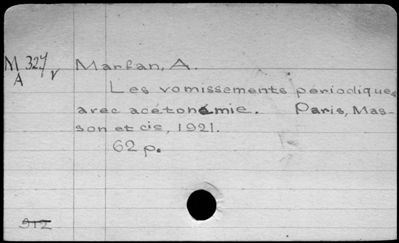 M 327 v Marfan, A.
A
Les vomissements périodiques
avec acétonémie. Paris, Mas-
son et cie, 1921.
62 p.
912